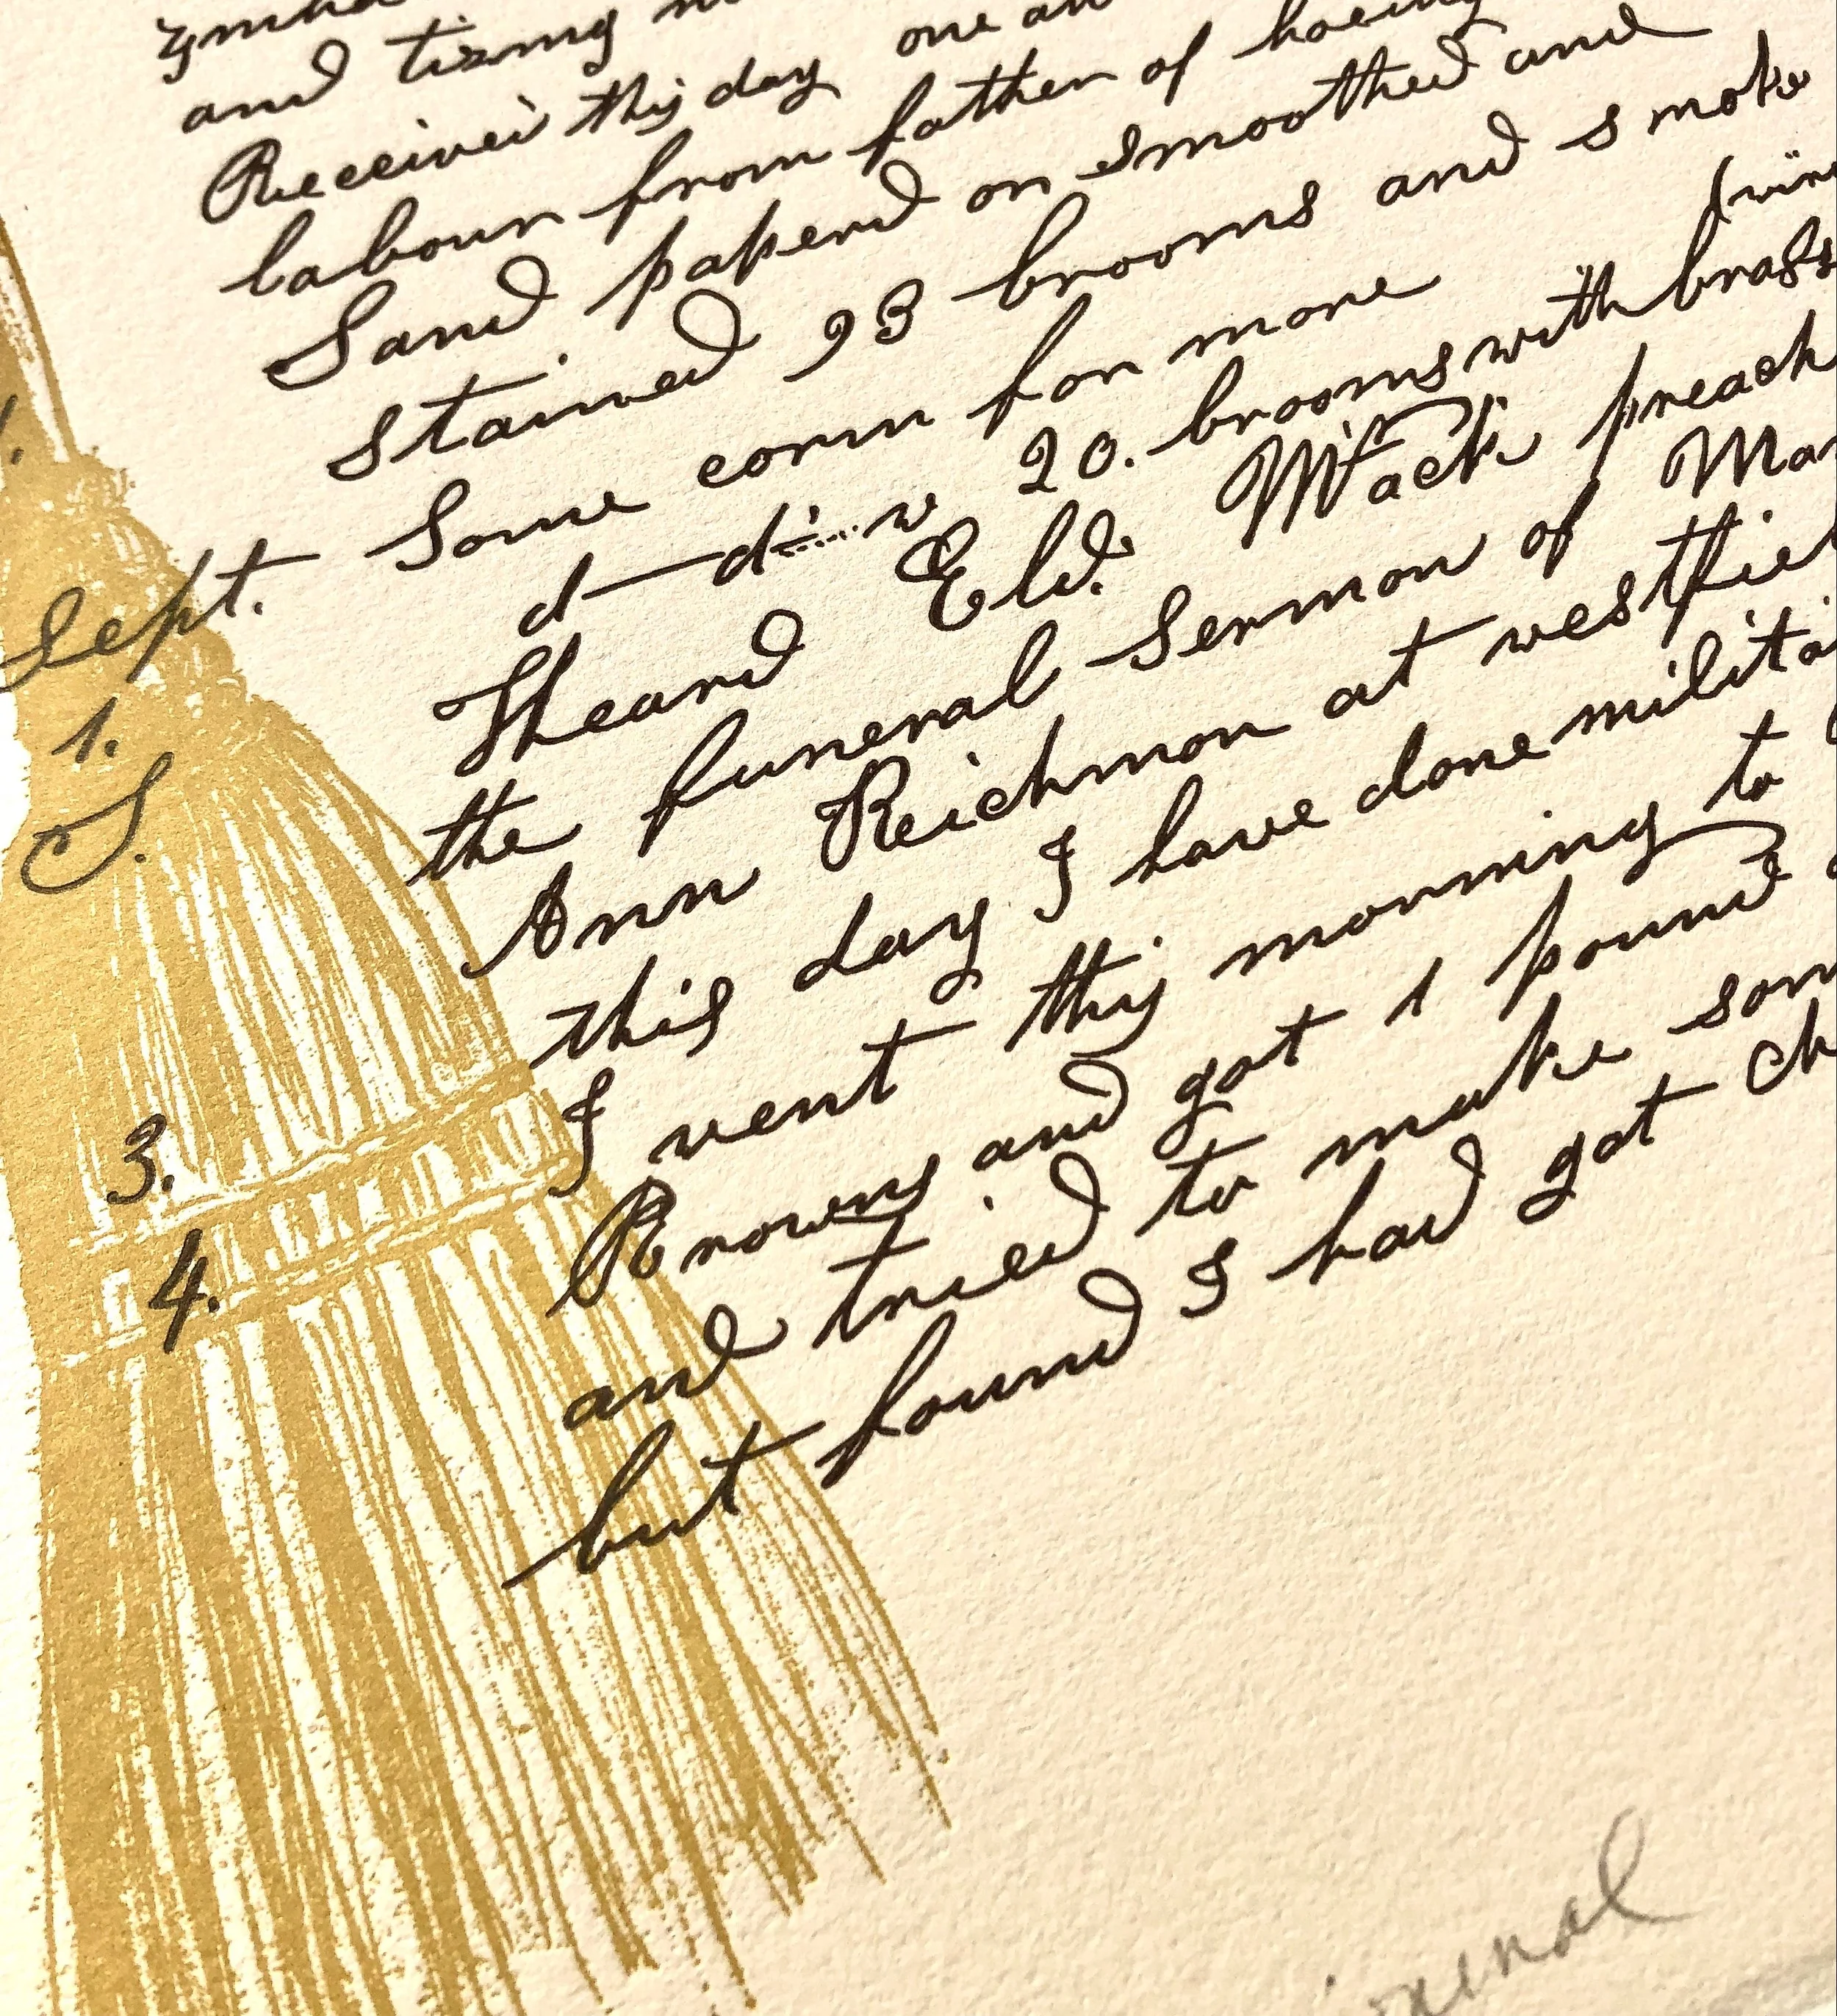 and tizing
Received this day one
labour from father of hoeing
Sand paperd on smoothed and
stained 93 brooms and smoke
Sept. Some corn for more
d d w 20. brooms with brass
1. S. Heard Eld. Wack preach
the funeral Sermon of
Ann Reichmon at westfiel
this day I have done milita
3. I went this morning to
Browns and got 1 pound
4. and tried to make som
but found I had got ch